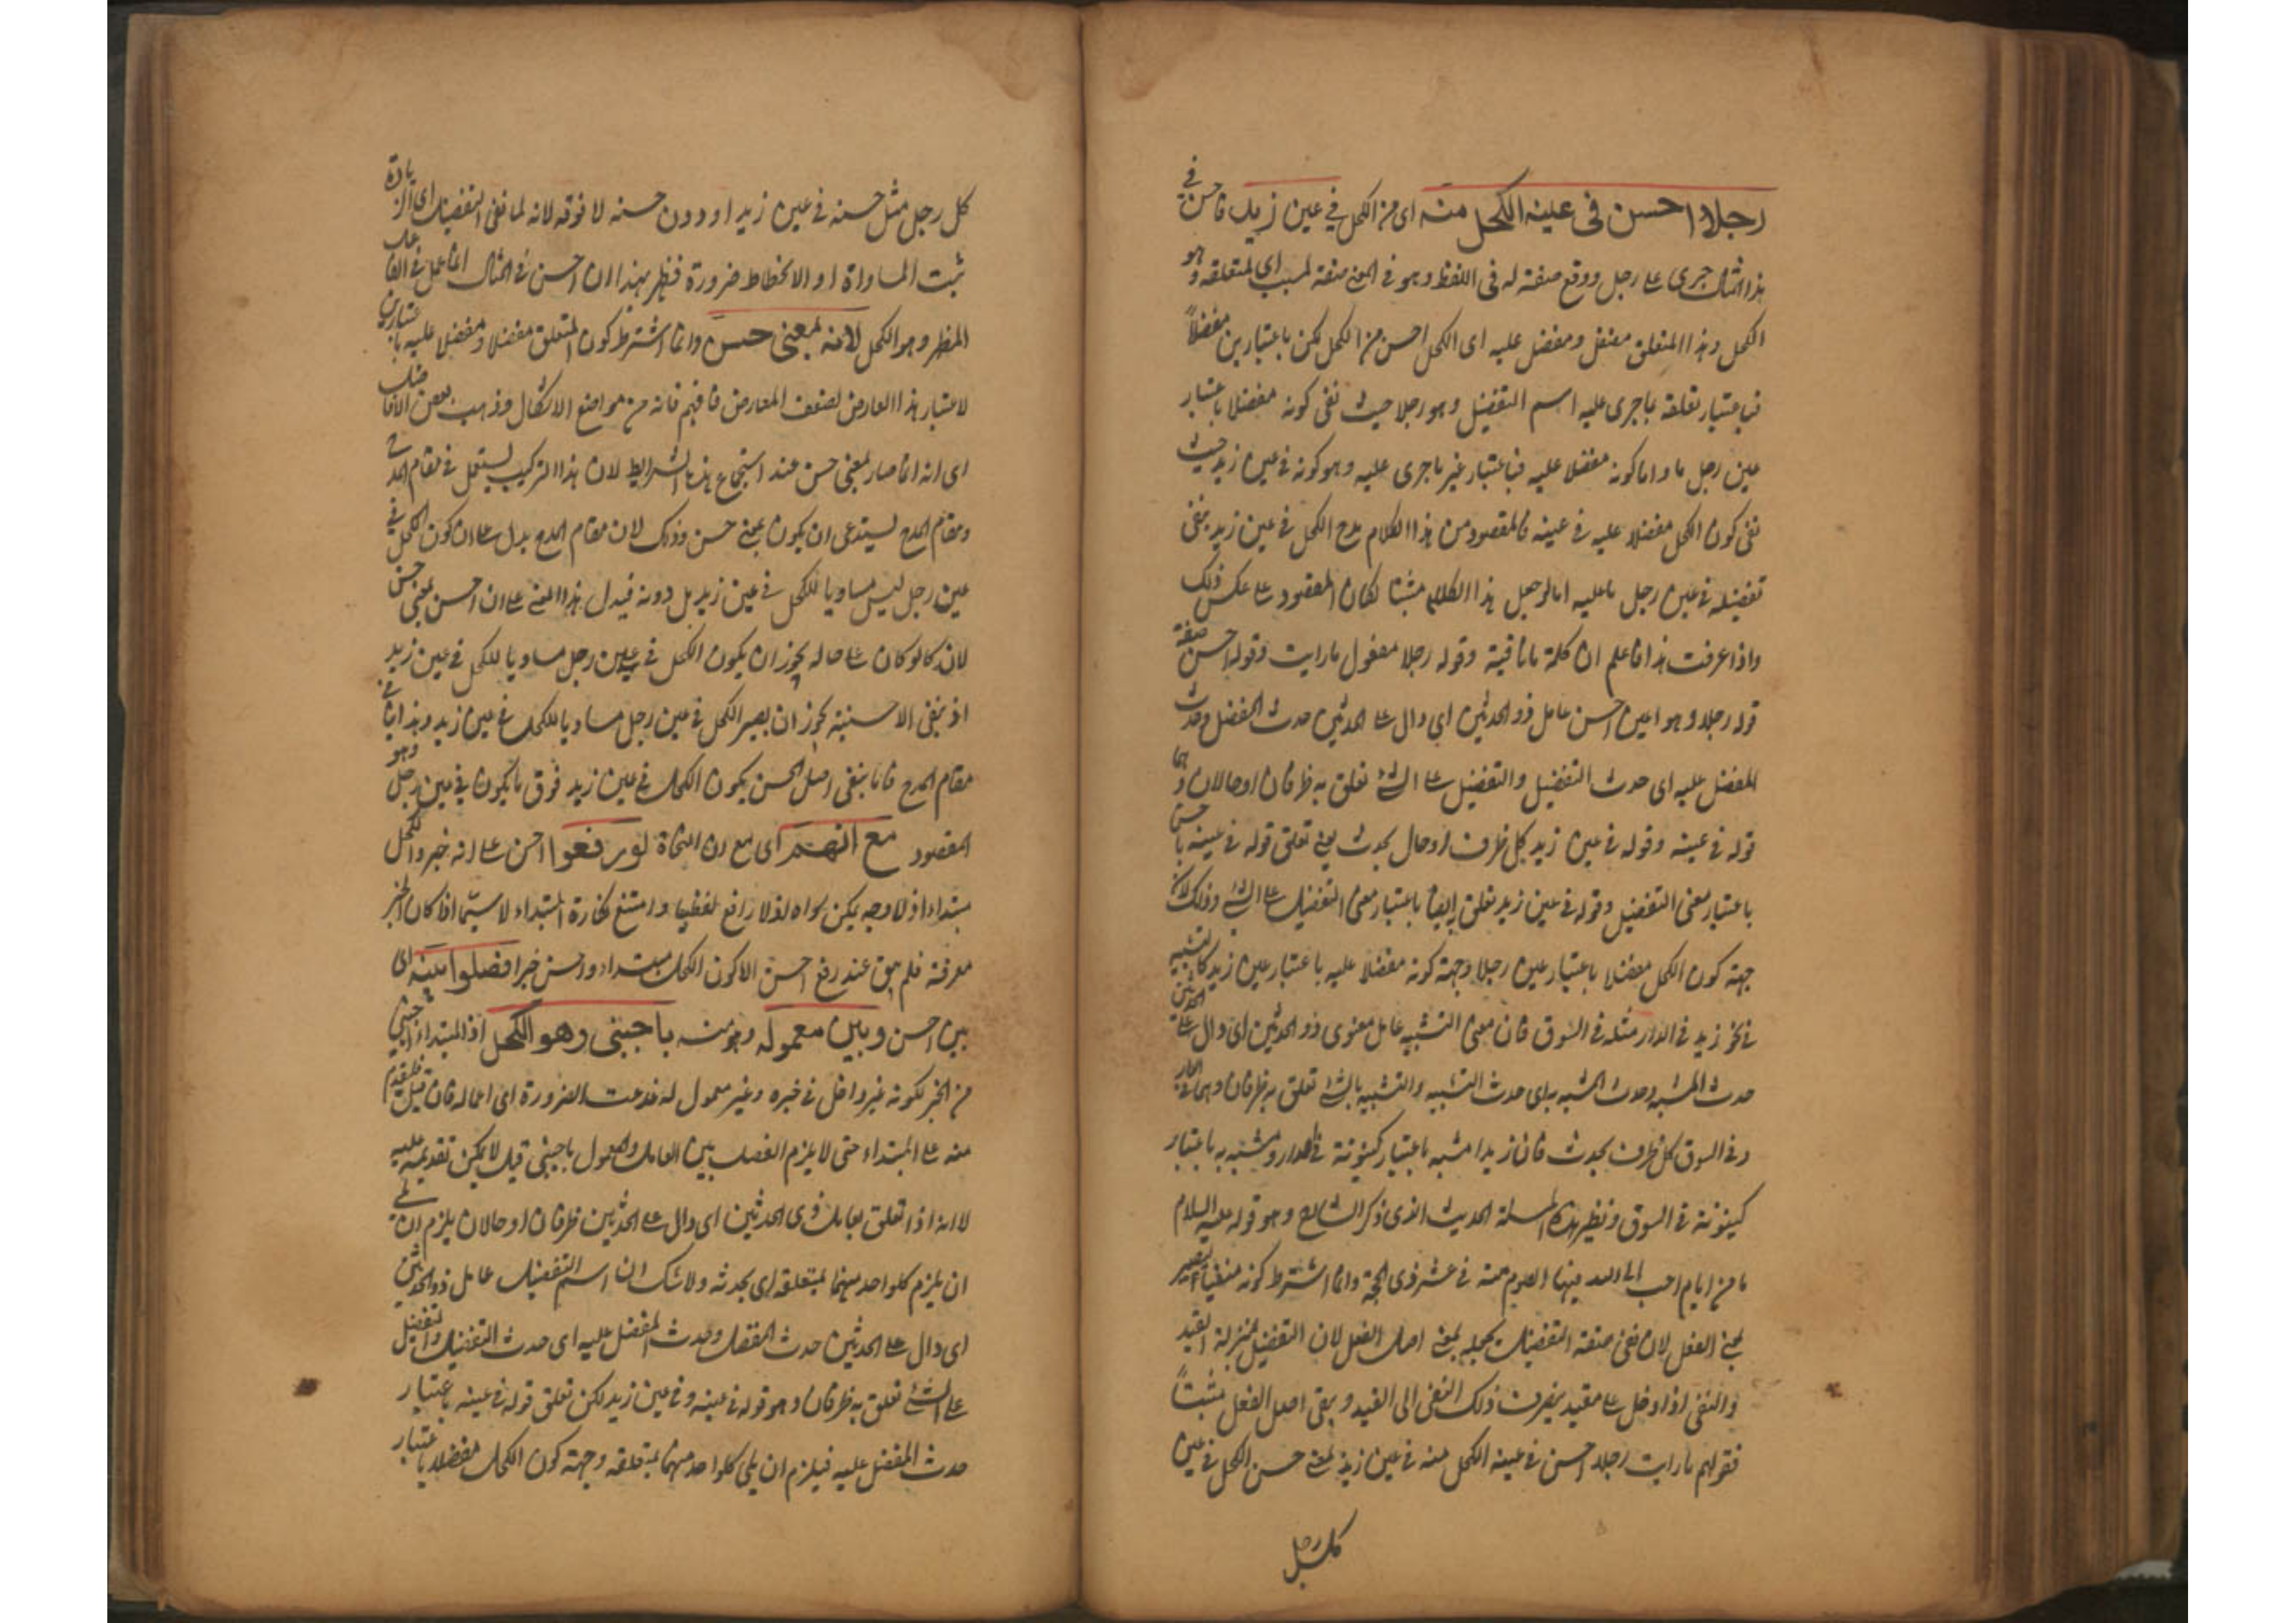 رجلا احسن فى عينه الكحل منه اى من الكحل في عين زيد فاحسن في
هذا المثال جرى على رجل ووقع صفة له فى اللفظ وهو في المعنى صفة لمسبب اى لمتعلقه وهو
الكحل وهذا المتعلق مفضل ومفضل عليه اى الكحل احسن من الكحل لكن باعتبارين مفضلاً
فباعتبار تعلقه بما جرى عليه اسم التفضيل وهو رجلا حيث نفى كونه مفضلا باعتبار
عين رجل ما واما كونه مفضلا عليه فباعتبار غير ما جرى عليه وهو كونه في عين زيد حيث
نفى كون الكحل مفضلا عليه في عينه فالمقصود من هذا الكلام مدح الكحل في عين زيد بنفى
تفضيله في عين رجل ما عليه اما لو جعل هذا الكلام مثبتا لكان المقصود على عكس ذلك
واذا عرفت هذا فاعلم ان كلمة ما نافية وقوله رجلا مفعول ما رايت وقوله احسن صفة
قوله رجلا وهو اعنى احسن عامل ذو الحدثين اى دال على الحدثين حدث المفضل وحدث
المفضل عليه اى حدث التفضيل والتفضيل على الشئ تعلق به ظرفان او حالان وهما
قوله في عينه وقوله في عين زيد كل ظرف او حال بحدث يعنى تعلق قوله في عينه باحسن
باعتبار معنى التفضيل وقوله في عين زيد تعلق ايضا باعتبار معنى التفضيل على الشئ وذلك لان
جهة كون الكحل مفضلا باعتبار عين رجلا وجهة كونه مفضلا عليه باعتبار عين زيد كالتشبيه
في نحو زيد في الدار مثله في السوق فان معنى التشبيه عامل معنوى ذو الحدثين اى دال على الحدثين
حدث المشبه وحدث المشبه به اى حدث التشبيه والتشبيه بالشئ تعلق به ظرفان وهما في الدار
وفى السوق كل ظرف بحدث فان زيدا مشبه باعتبار كينونته في الدار ومشبه به باعتبار
كينونته في السوق ونظير هذه المسئلة الحديث الذى ذكر الشارح وهو قوله عليه السلام
ما من ايام احب الى الله فيها الصوم منه في عشر ذى الحجة وانما اشترط كونه منفيا ليصير
بمعنى الفعل لان نفى صفة التفضيل يجعله بمعنى اصل الفعل لان التفضيل بمنزلة القيد
والنفى اذا دخل على مقيد ينصرف ذلك النفى الى القيد ويبقى اصل الفعل مثبتاً
فقولهم ما رايت رجلا احسن في عينه الكحل منه في عين زيد بمعنى حسن الكحل في عين
كل رجل
كل رجل مثل حسنه في عين زيد او دون حسنه لا فوقه لانه لما نفى التفضيل اى الزيادة
ثبت المساواة او الانحطاط ضرورة فظهر بهذا ان احسن في المثال انما عمل في الفاعل
المظهر وهو الكحل لانه بمعنى حسن وانما اشترط كون المتعلق مفضلا ومفضلا عليه باعتبارين
لاعتبار هذا العارض لضعف المعارض فافهم فانه من مواضع الاشكال وذهب بعض الافاضل
اى انه انما صار بمعنى حسن عند استجماع هذه الشرايط لان هذا التركيب يستعمل في مقام المدح
ومقام المدح يستدعى ان يكون بمعنى حسن وذلك لان مقام المدح يدل على ان كون الكحل في
عين رجل ليس مساويا للكحل في عين زيد بل دونه فيدل هذا المعنى على ان احسن بمعنى حسن
لانه لو كان على حاله يجوز ان يكون الكحل في عين رجل مساويا للكحل في عين زيد
اذ بنفى الاحسنية يجوز ان يصير الكحل في عين رجل مساويا للكحل في عين زيد وهذا ينافى
مقام المدح فاما بنفى اصل الحسن يكون الكحل في عين زيد فوق ما يكون في عين رجل وهو
المقصود مع انهم اى مع ان النحاة لو رفعوا احسن على انه خبر والكحل
مبتداء اذ لا وجه يمكن سواه اذ لا رافع لفظيا وامتنع نكارة المبتداء لا سيما اذا كان الخبر
معرفة فلم يبق عند رفع احسن الا كون الكحل مبتداء واحسن خبرا فصلوا بينه اى
بين احسن وبين معموله وهو منه باجنبى وهو الكحل اذ المبتداء اجنبى
من الخبر لكونه غير داخل في خبره وغير معمول له فدعت الضرورة اى اعماله فان قيل فليقدم
منه على المبتداء حتى لا يلزم الفصل بين العامل والمعمول باجنبى قيل لا يمكن تقديمه عليه
لانه اذا تعلق بعامل ذى الحدثين اى دال على الحدثين ظرفان او حالان يلزم ان يلى
ان يلزم كلواحد منهما بمتعلقه اى بحدثه ولا شك ان اسم التفضيل عامل ذو الحدثين
اى دال على الحدثين حدث المفضل وحدث المفضل عليه اى حدث التفضيل والتفضيل
على الشئ تعلق به ظرفان وهو قوله في عينه وفي عين زيد لكن تعلق قوله في عينه باعتبار
حدث المفضل عليه فيلزم ان يلى كلواحد منهما بمتعلقه وجهة كون الكحل مفضلا باعتبار